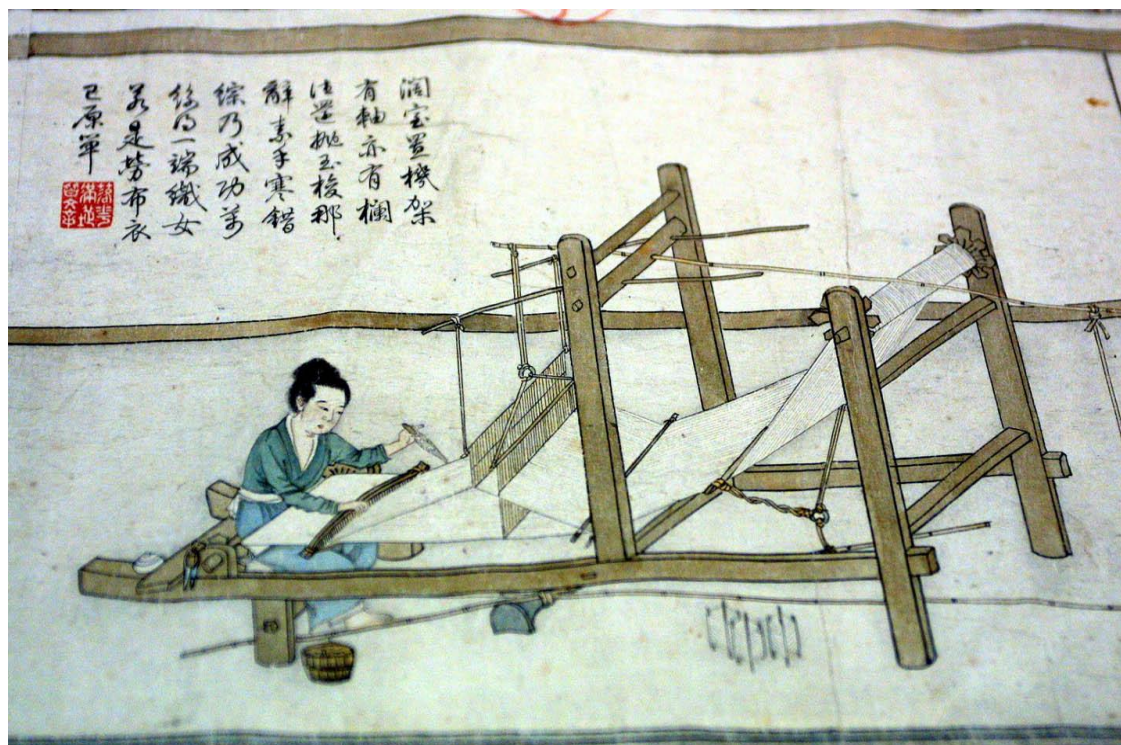 濶室置機架
有軸亦有欄
往還拋玉梭那
辭素手寒錯
綜乃成功萬
絲得一端織女
若是勞布衣
已原單